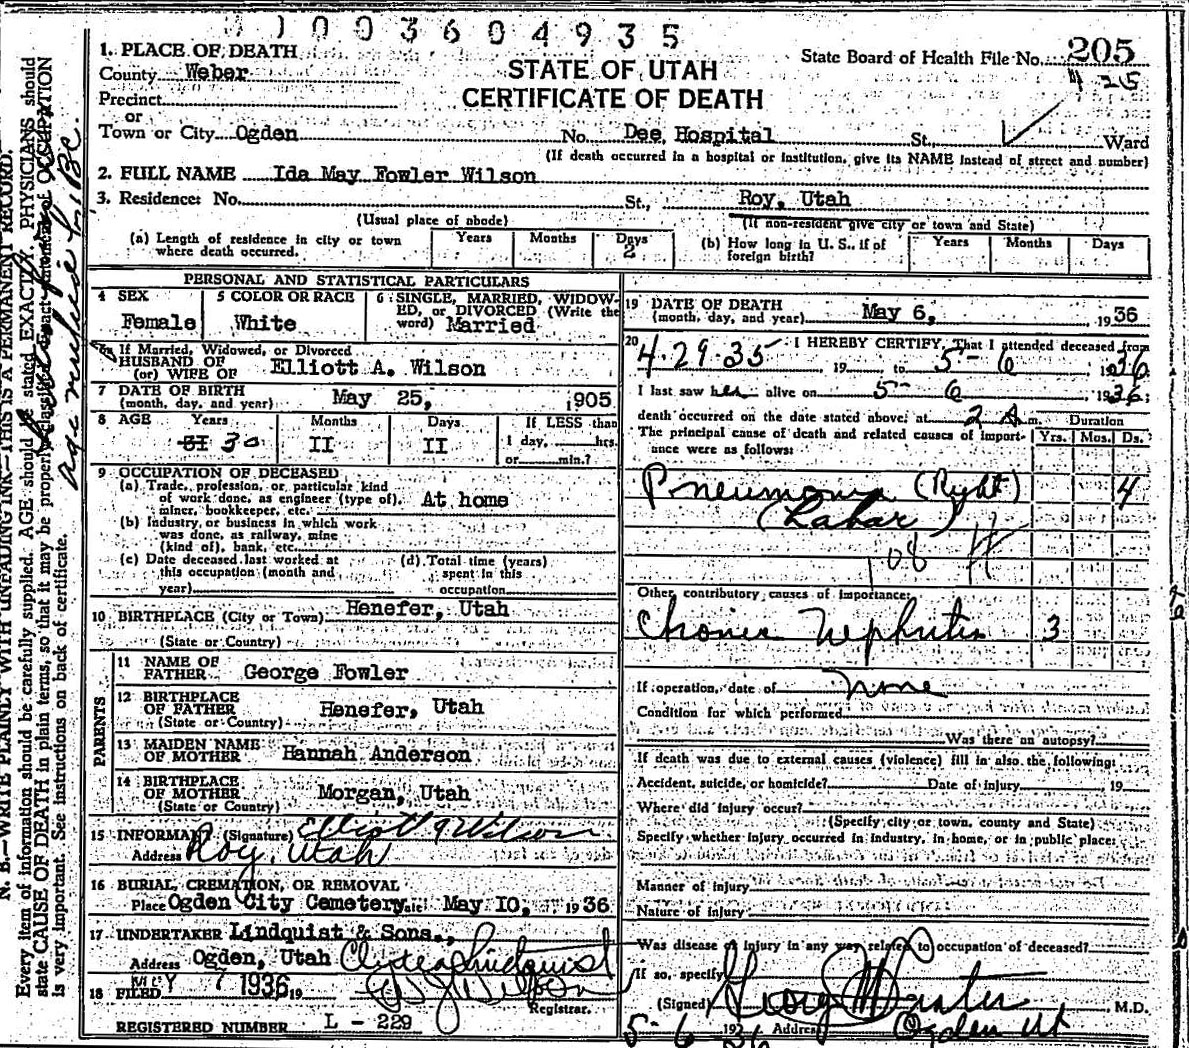 1003604935
1. PLACE OF DEATH
State Board of Health File No. 205
County Weber
STATE OF UTAH
Precinct
CERTIFICATE OF DEATH
or
Town or City Ogden No. Dee Hospital St., Ward
(If death occurred in a hospital or institution, give its NAME instead of street and number)
2. FULL NAME Ida May Fowler Wilson
3. Residence: No. St., Roy, Utah
(Usual place of abode) (If non-resident give city or town and State)
(a) Length of residence in city or town where death occurred. Years Months Days 2
(b) How long in U. S., if of foreign birth? Years Months Days
PERSONAL AND STATISTICAL PARTICULARS
4 SEX Female
5 COLOR OR RACE White
6 SINGLE, MARRIED, WIDOWED, or DIVORCED (Write the word) Married
If Married, Widowed, or Divorced
HUSBAND OF
(or) WIFE OF Elliott A. Wilson
7 DATE OF BIRTH
(month, day, and year) May 25, 1905
8 AGE Years Months Days If LESS than
31 30 II II 1 day, hrs.
or min.?
9 OCCUPATION OF DECEASED
(a) Trade, profession, or particular kind
of work done, as engineer (type of), At home
miner, bookkeeper, etc.
(b) Industry, or business in which work
was done, as railway, mine
(kind of), bank, etc.
(c) Date deceased last worked at
this occupation (month and
year)
(d) Total time (years)
spent in this
occupation
10 BIRTHPLACE (City or Town) Henefer, Utah
(State or Country)
PARENTS
11 NAME OF
FATHER George Fowler
12 BIRTHPLACE
OF FATHER Henefer, Utah
(State or Country)
13 MAIDEN NAME
OF MOTHER Hannah Anderson
14 BIRTHPLACE
OF MOTHER Morgan, Utah
(State or Country)
15 INFORMANT (Signature) Elliott A Wilson
Address Roy, Utah
16 BURIAL, CREMATION, OR REMOVAL
Place Ogden City Cemetery Date May 10, 1936
17 UNDERTAKER Lindquist & Sons.,
Address Ogden, Utah Clyde Lindquist
18 FILED MAY 7 1936 19
Registrar.
REGISTERED NUMBER L - 229
19 DATE OF DEATH
(month, day, and year) May 6, 1936
20 I HEREBY CERTIFY, That I attended deceased from
4.29.35 19 to 5-6 1936
I last saw her alive on 5-6, 1936;
death occurred on the date stated above, at 2 A m. Duration
The principal cause of death and related causes of importance were as follows: Yrs. Mos. Ds.
Pneumonia (Right) 4
(Lobar)
108
Other contributory causes of importance:
Chronic Nephritis 3
If operation, date of none
Condition for which performed
Was there an autopsy?
If death was due to external causes (violence) fill in also the following:
Accident, suicide or homicide? Date of injury 19
Where did injury occur?
(Specify city or town, county and State)
Specify whether injury occurred in industry, in home, or in public place:
Manner of injury
Nature of injury
Was disease or injury in any way related to occupation of deceased?
If so, specify
(Signed) M.D.
5-6 1936 Address Ogden Ut
N. B.—WRITE PLAINLY WITH UNFADING INK—THIS IS A PERMANENT RECORD.
Every item of information should be carefully supplied. AGE should be stated EXACTLY. PHYSICIANS should
state CAUSE OF DEATH in plain terms, so that it may be properly classified. Exact statement of OCCUPATION
is very important. See instructions on back of certificate.